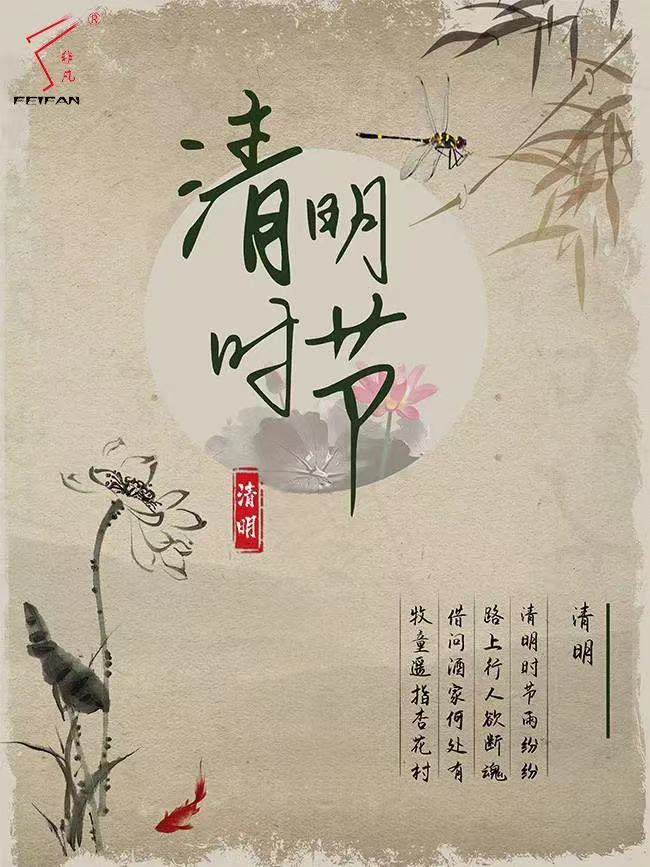 ®
非凡
FEIFAN
清明
时节
清明
清明
清明时节雨纷纷
路上行人欲断魂
借问酒家何处有
牧童遥指杏花村